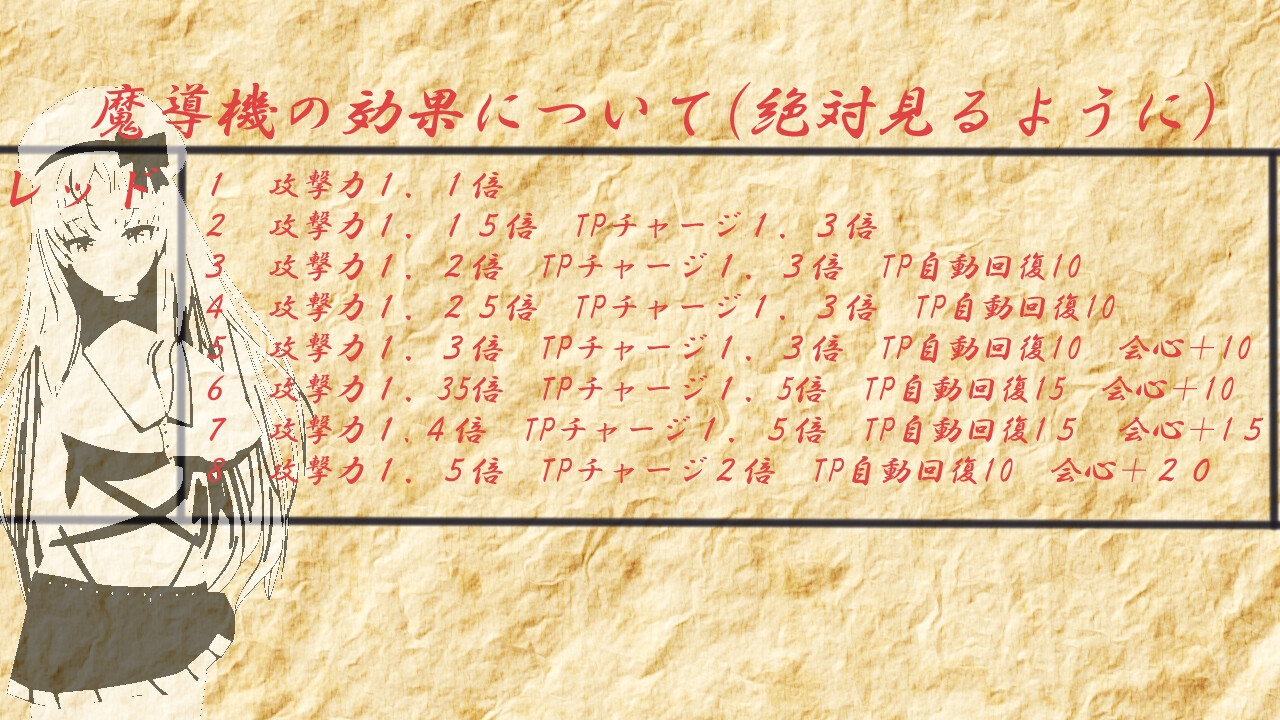 魔導機の効果について(絶対見るように)
レッド
1 攻撃力1.1倍
2 攻撃力1.15倍 TPチャージ1.3倍
3 攻撃力1.2倍 TPチャージ1.3倍 TP自動回復10
4 攻撃力1.25倍 TPチャージ1.3倍 TP自動回復10
5 攻撃力1.3倍 TPチャージ1.3倍 TP自動回復10 会心+10
6 攻撃力1.35倍 TPチャージ1.5倍 TP自動回復15 会心+10
7 攻撃力1.4倍 TPチャージ1.5倍 TP自動回復15 会心+15
8 攻撃力1.5倍 TPチャージ2倍 TP自動回復10 会心+20